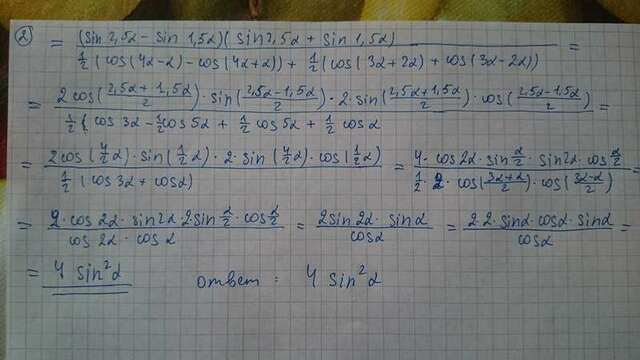 ② = (sin 2,5α - sin 1,5α)(sin 2,5α + sin 1,5α) / ½(cos(4α-α) - cos(4α+α)) + ½(cos(3α+2α) + cos(3α-2α)) =
= 2cos((2,5α+1,5α)/2)·sin((2,5α-1,5α)/2)·2·sin((2,5α+1,5α)/2)·cos((2,5α-1,5α)/2) / ½(cos 3α - ½cos 5α + ½ cos 5α + ½ cos α =
= 2cos(4/2 α)·sin(½α)·2·sin(4/2 α)·cos(½α) / ½(cos 3α + cos α) = 4·cos 2α·sin α/2·sin 2α·cos α/2 / ½·2·cos((3α+α)/2)·cos((3α-α)/2) =
= 2·cos 2α·sin 2α 2 sin α/2·cos α/2 / cos 2α·cos α = 2 sin 2α·sin α / cos α = 2·2·sin α·cos α·sin α / cos α =
= 4 sin²α ответ: 4 sin²α